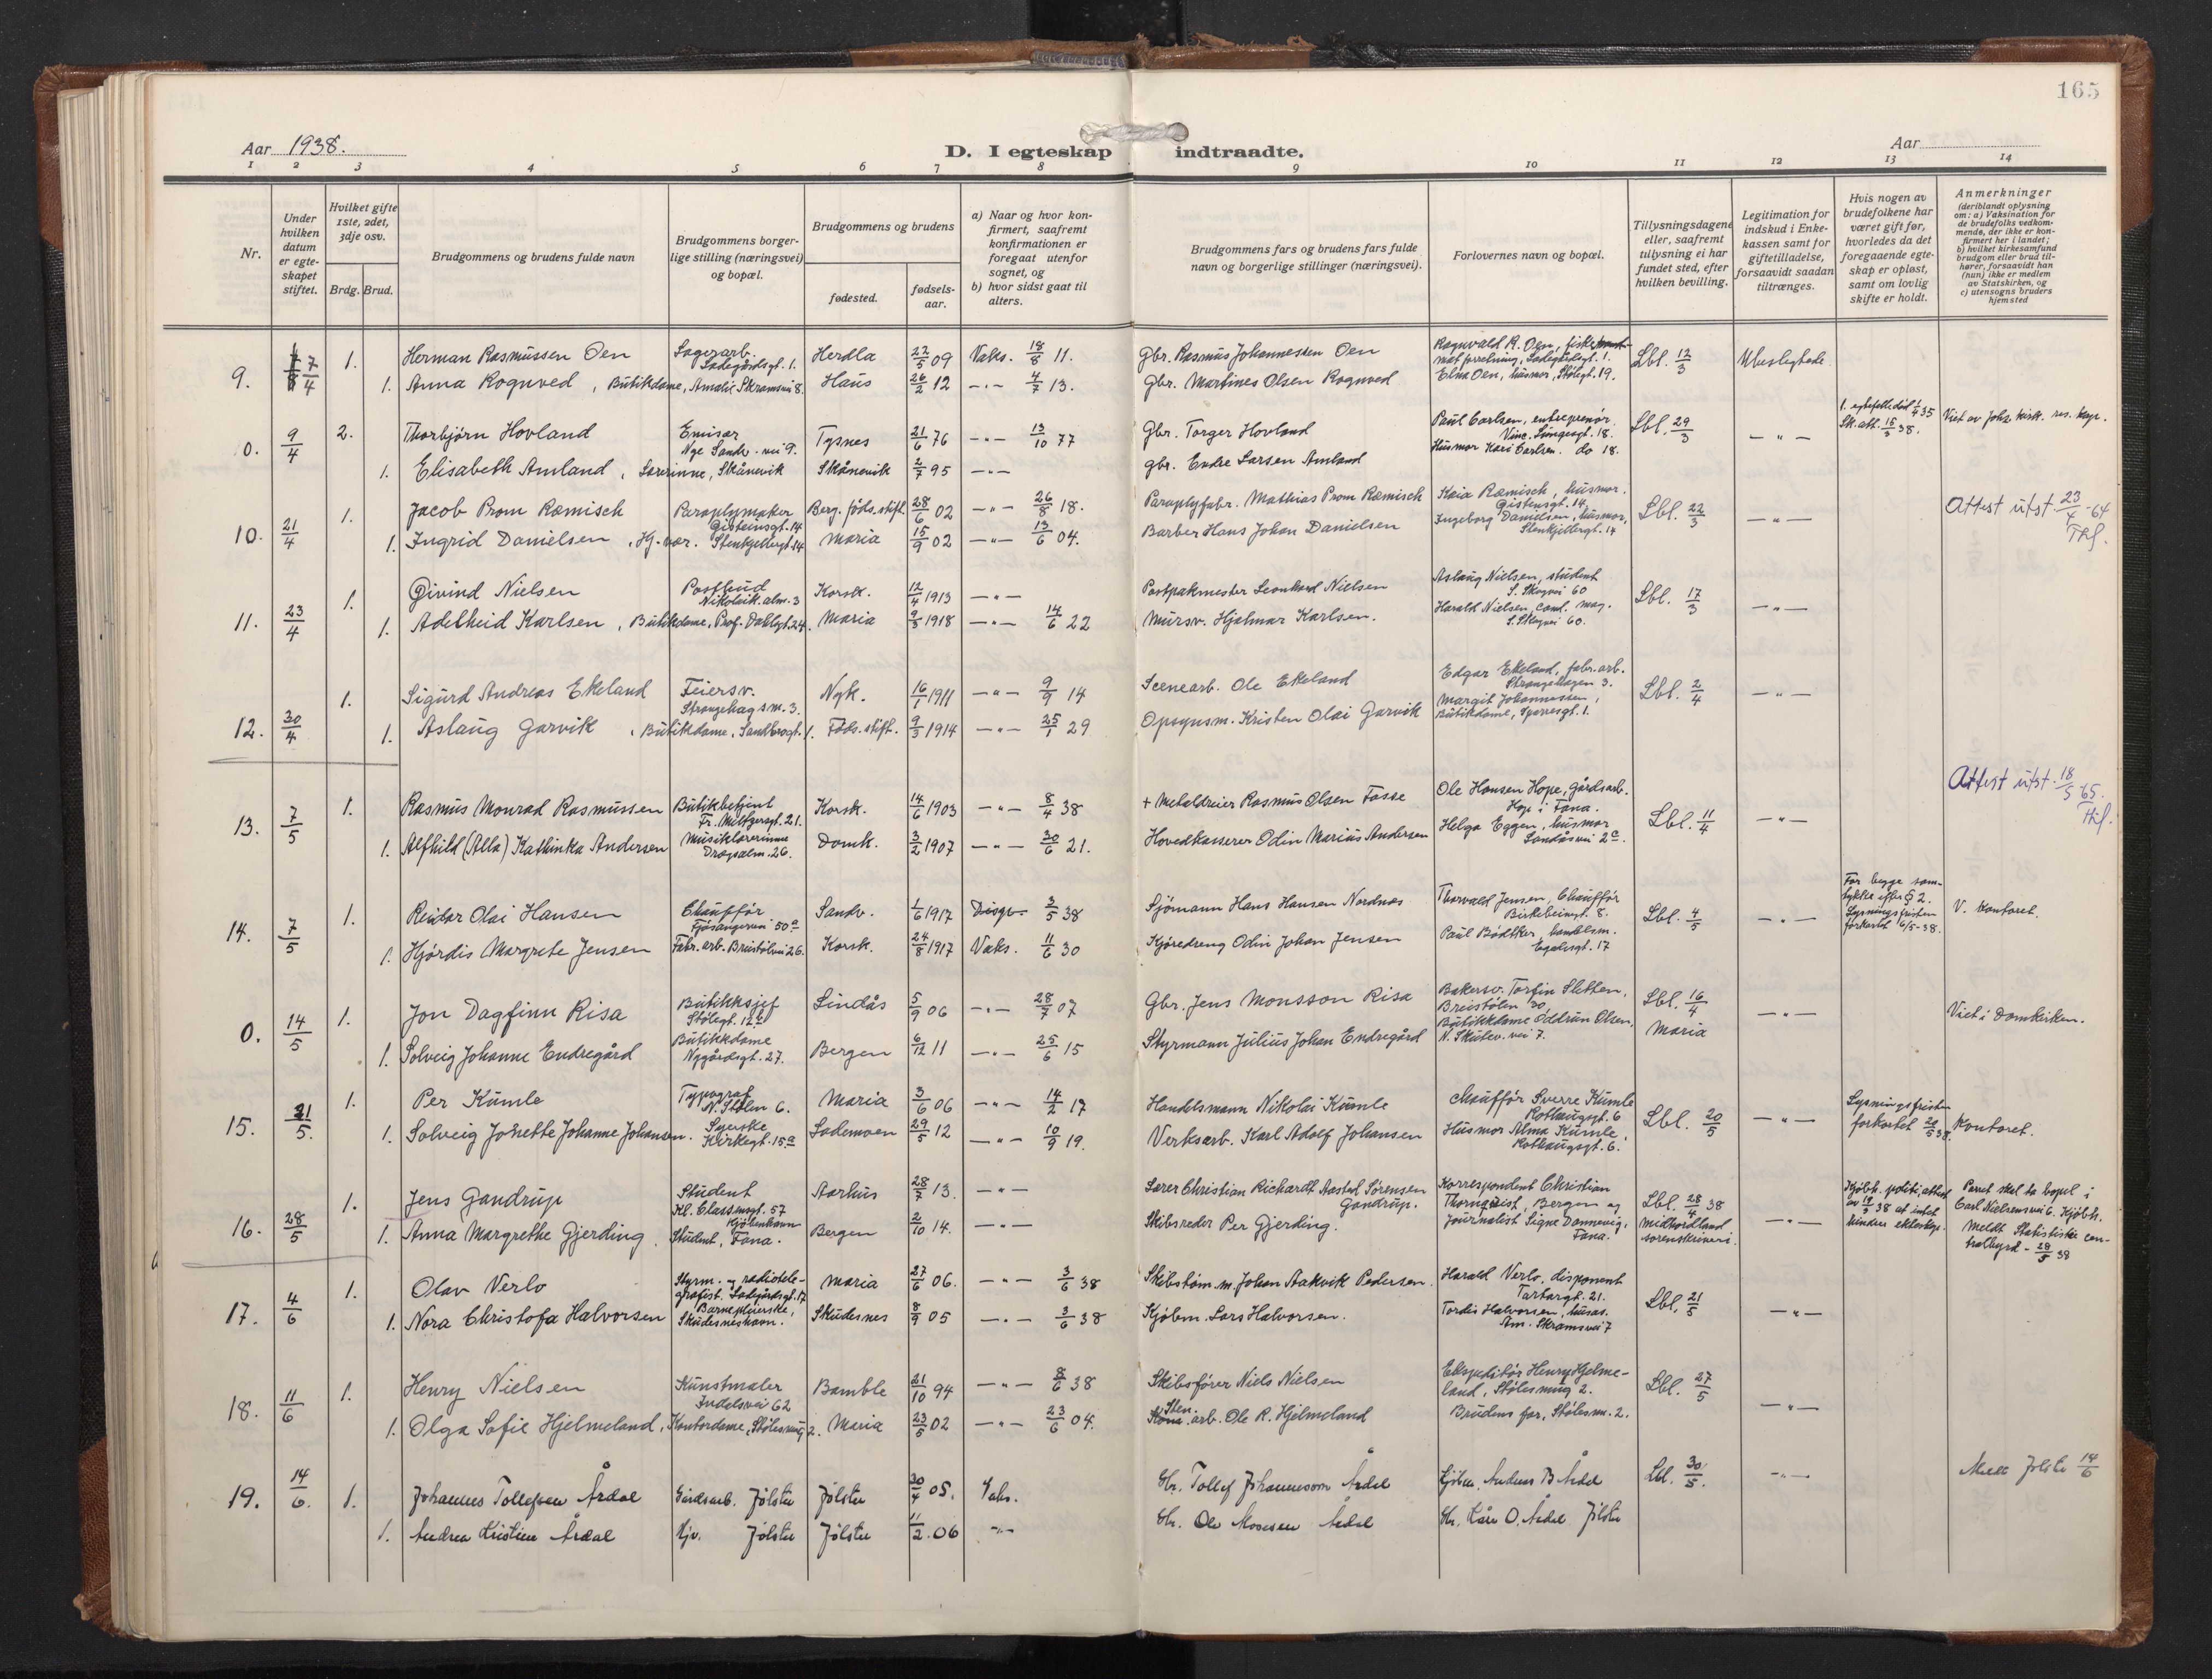 165
Aar 1938.
D. I egteskap indtraadte.
Aar
1 2 3 4 5 6 7 8 9 10 11 12 13 14
Nr.
Under hvilken datum er egteskapet stiftet.
Hvilket gifte 1ste, 2det, 3dje osv.
Brdg. Brud.
Brudgommens og brudens fulde navn
Brudgommens borgerlige stilling (næringsvei) og bopæl.
Brudgommens og brudens
fødested.
fødselsaar.
a) Naar og hvor konfirmert, saafremt konfirmationen er foregaat utenfor sognet, og
b) hvor sidst gaat til alters.
Brudgommens fars og brudens fars fulde navn og borgerlige stillinger (næringsvei).
Forlovernes navn og bopæl.
Tillysningsdagene eller, saafremt tillysning ei har fundet sted, efter hvilken bevilling.
Legitimation for indskud i Enkekassen samt for giftetilladelse, forsaavidt saadan tiltrænges.
Hvis nogen av brudefolkene har været gift før, hvorledes da det foregaaende egteskap er opløst, samt om lovlig skifte er holdt.
Anmerkninger (deriblandt oplysning om: a) Vaksination for de brudefolks vedkommende, der ikke er konfirmert her i landet; b) hvilket kirkesamfund brudgom eller brud tilhører, forsaavidt han (hun) ikke er medlem av Statskirken, og c) utensogns bruders hjemsted
9. 7/4 1. Herman Rasmussen Oen Lagerarb. Ladegårdsgt. 1. Herdla 22/5 09 Vaks. 18/8 11. Gbr. Rasmus Johannessen Oen Ragnvald R. Oen, Ladegårdsgt. 1. Lbl. 12/3 Ubeslegtede
1. Anna Rognved, Butikdame, Amalie Skramsvei 8. Haus 26/2 12 -"- 4/7 13. Gbr. Martines Olsen Rognved Elna Oen, husmor, Stølegt. 19.
0. 9/4 2. Thorbjørn Hovland Emisær Nye Sandv.vei 9. Tysnes 21/6 76 -"- 13/10 77 Gbr. Torger Hovland Paul Carlsen, entreprenør Vinc. Lungesgt. 18. Lbl. 29/3 -"- Sk. att. 15/3 38. Viet av
1. Elisabeth Amland, Lærerinne, Skånevik Skånevik 2/7 95 -"- gbr. Endre Larsen Amland Husmor Kari Carlsen. do 18.
10. 21/4 1. Jacob Prom Ræmisch Paraplymaker Gisteinsgt. 14 Berg. føds.stift. 28/6 02 -"- 26/8 18. Paraplyfabr. Mathias Prom Ræmisch Kaia Ræmisch, husmor. Gisteinsgt. 14, Lbl. 22/3 -"- Attest utst. 23/4-64
1. Ingrid Danielsen, Hj.vær. Stenkjellergt. 14 Maria 15/9 02 -"- 13/6 04. Barber Hans Johan Danielsen Ingeborg Danielsen, husmor, Stenkjellergt. 14
11. 23/4 1. Øivind Nielsen Postbud Nikolaik.alm. 3 Korsk. 12/4 1913 -"- Postpakmester Leonhard Nielsen Aslaug Nielsen, student S. Skogvei 60 Lbl. 17/3 -"-
1. Adelheid Karlsen, Butikdame, Prof. Dahlsgt. 24. Maria 9/3 1918 -"- 14/6 22 Mursv. Hjalmar Karlsen. Harald Nielsen, cand. mag. S. Skogvei 60.
12. 30/4 1. Sigurd Andreas Ekeland Feiersv. Strangehagsm. 3. Nyk. 16/1 1911 -"- 9/9 14 Scenearb. Ole Ekeland Edgar Ekeland, fabr.arb. Strangehagen 3. Lbl. 2/4 -"-
1. Aslaug Garvik, Butikdame, Sandbrogt. 1. Føds.stift. 9/3 1914 -"- 25/1 29 Opsynsm. Kristen Olai Garvik Margit Johannessen, Butikdame, Sparresgt. 1.
13. 7/5 1. Rasmus Monrad Rasmussen Butikbetjent Fr. Meltzersgt. 21. Korsk. 14/6 1903 -"- 8/4 38 + Metaldreier Rasmus Olsen Fosse Ole Hansen Hope, gårdsarb. Hop i Fana. Lbl. 11/4 -"- Attest utst. 18/5-65.
1. Alfhild (Alla) Kathinka Andersen Musiklærerinne Dragsalm. 26. Domk. 3/2 1907 -"- 30/6 21. Hovedkasserer Odin Marius Andersen Helga Eggen, husmor Landåsvei 2c.
14. 7/5 1. Reidar Olai Hansen Chauffør Fjøsangervei 50a Sandv. 1/6 1917 3/5 38 Sjømann Hans Hansen Nordnæs Thorvald Jensen, Chauffør Birkebeinergt. 8. Lbl. 4/5 -"- For begge samtykke efter § 2. Lysningsfristen forkortet 6/5-38. V. kontoret.
1. Hjørdis Margrete Jensen Fabr.arb. Breistølvei 26. Korsk. 24/8 1917 Vaks. 11/6 30 Kjøredreng Odin Johan Jensen Paul Bødtker, handelsm. Engelsgt. 17
0. 14/5 1. Jon Dagfinn Risa Butikksjef Stølegt. 17b Lindås 5/9 06 -"- 28/7 07 Gbr. Jens Monsson Risa Bakersv. Torfin Sletten, Breistølen 30 Lbl. 16/4 Maria -"- Viet i Domkirken.
1. Solveig Johanne Endregård Butikkdame Nygårdsgt. 27. Bergen 6/12 11 -"- 25/6 15 Styrmann Julius Johan Endregård Butikkdame Oddrun Olsen, N. Skutev.vei 7.
15. 21/5. 1. Per Kumle Typograf N. Stølen 6. Maria 3/6 06 -"- 14/2 17 Handelsmann Nikolai Kumle Chauffør Sverre Kumle Rothaugsgt. 6 Lbl. 20/5 -"- Lysningsfristen forkortet 20/5 38. Kontoret.
1. Solveig Jonette Johanne Johansen. Syerske Kirkegt. 15a Lademoen 29/5 12 -"- 10/9 19. Verksarb. Karl Adolf Johansen Husmor Alma Kumle, Rothaugsgt. 6.
16. 28/5 1. Jens Gandrup Student Kl. Classensgt. 57 Kjøbenhavn Aarhus 28/7 13. -"- Lærer Christian Richardt Aasted Sørensen Gandrup. Korrespondent Christian Thornqvist, Bergen og Lbl. 28/4 38 Midhordland sorenskriveri. -"- Kjøbh. politi attest av 19/5 38 at intet hindrer ekteskap. Parret skal ta bopel i Carl Nielsensvei 6. Kjøbh. Meldt Statistiske centralbyrå - 28/5 38
1. Anna Margrethe Gjerding. Student, Fana. Bergen 2/10 14. -"- Skibsreder Per Gjerding. Journalist Signe Dannevig, Fana.
17. 4/6 1. Olav Verlo Styrm. og radiotelegrafist. Ladegårdsgt. 17 Maria 27/6 06. -"- 3/6 38 Skibstøm.m. Johan Aakvik Pedersen. Harald Verlo, disponent Tartargt. 21. Lbl. 21/5 -"-
1. Nora Christofa Halvorsen Barnepleierske, Skudesneshavn. Skudesnes 8/9 05 -"- 3/6 38 Kjøbm. Lars Halvorsen. Tordis Halvorsen, husas. Am. Skramsvei 7
18. 11/6 1. Henry Nielsen Kunstmaler Indelsvei 62 Bamble 21/10 94 -"- 8/6 38 Skibsfører Niels Nielsen Ekspeditør Henry Hjelmeland, Stølesmug 2. Lbl. 27/5 -"-
1. Olga Sofie Hjelmeland, Kontordame, Stølesmug 2. Maria 23/5 02 -"- 23/6 04. Sten.arb. Ole R. Hjelmeland Brudens far, Stølesm. 2.
19. 14/6. 1. Johannes Tollefsen Årdal Gårdsarb. Jølster Jølster 30/4 05. Vaks. Gbr. Tollef Johannesson Årdal Kjøbm. Andreas B Årdal Lbl. 30/5. -"- Meldt Jølster 14/6
1. Andrea Kristine Årdal Hjv. Jølster Jølster 11/2.06 -"- Gbr. Ole Mosessen Årdal Gbr. Kåre O. Årdal Jølster